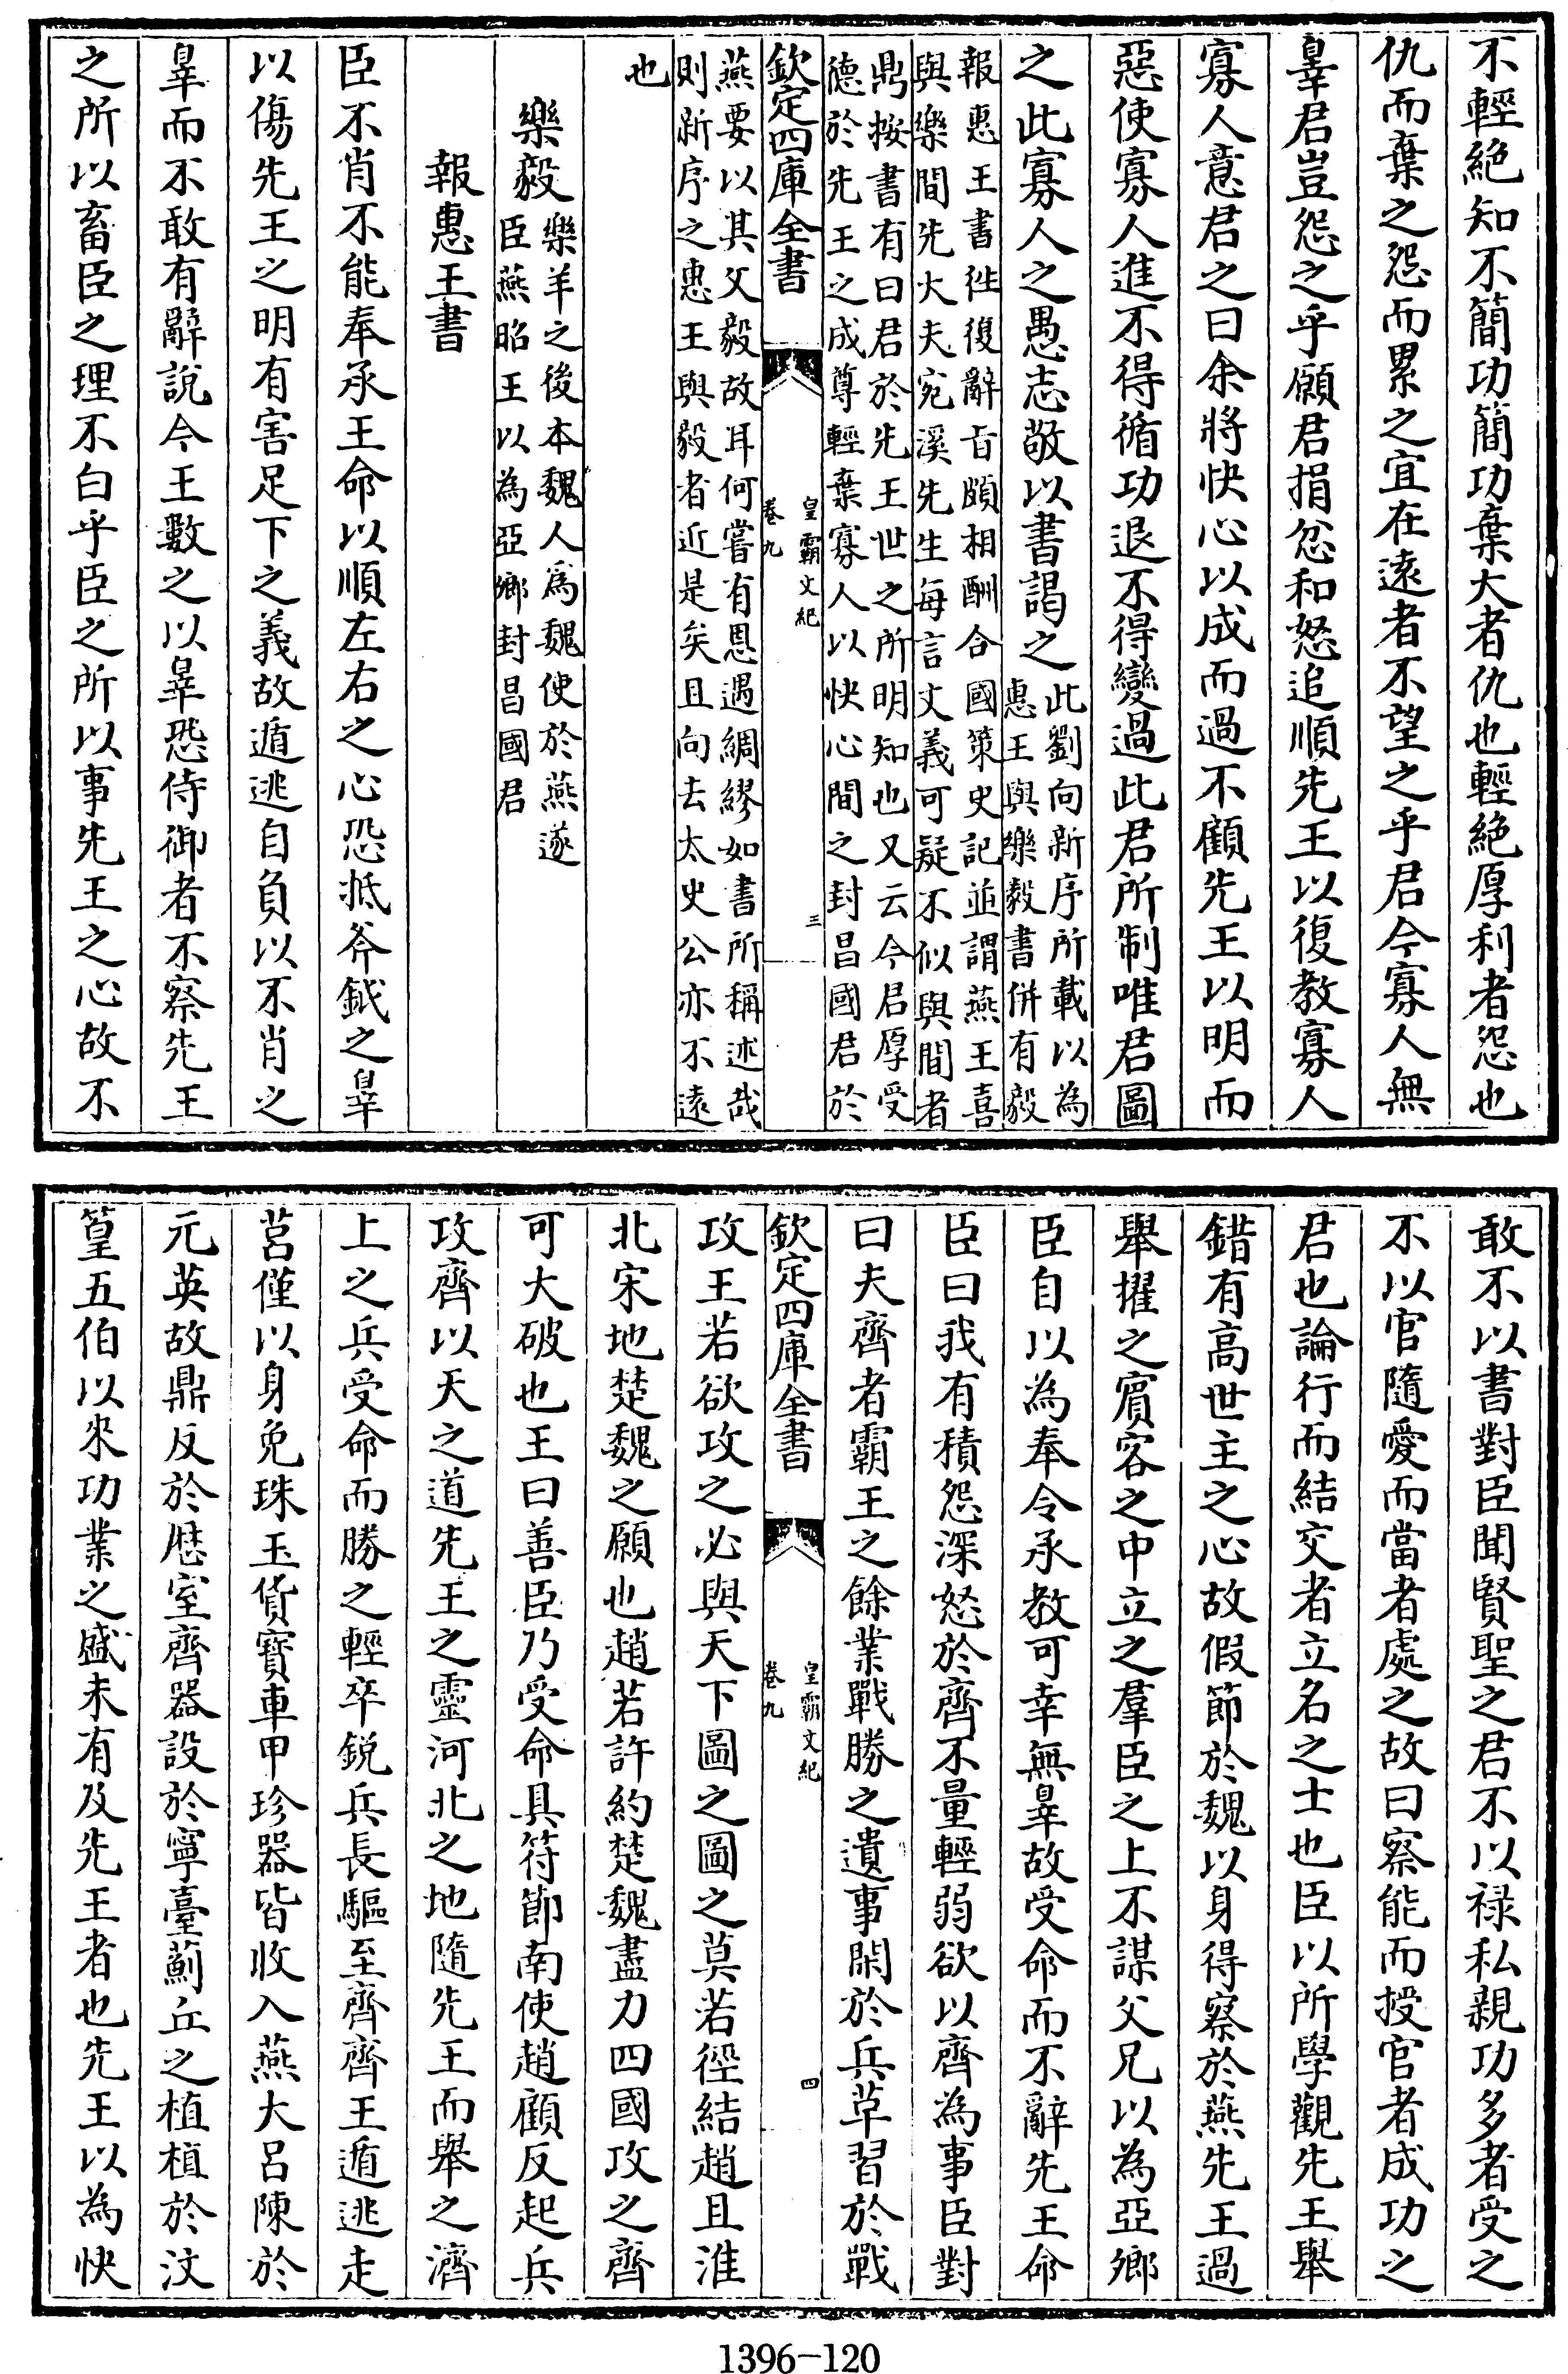 不輕絶知不簡功簡功棄大者仇也輕絶厚利者怨也
仇而棄之怨而累之宜在逺者不望之乎君今寡人無
辠君豈怨之乎願君捐忿和怒追順先王以復教寡人
寡人意君之曰余將快心以成而過不顧先王以明而
惡使寡人進不得循功退不得變過此君所制唯君圖
之此寡人之愚志敬以書謁之此劉向新序所載以為
惠王與樂毅書併有毅
報惠王書徃復辭㫖頗相酬合國策史記並謂燕王喜
與樂間先大夫宛溪先生每言文義可疑不似與間者
鼎按書有曰君於先王世之所明知也又云今君厚受
德於先王之成尊輕棄寡人以快心間之封昌國君於
欽定四庫全書
皇霸文紀
卷九
三
燕要以其父毅故耳何嘗有恩遇綢繆如書所稱述哉
則新序之惠王與毅者近是矣且向去太史公亦不逺
也
樂毅樂羊之後本魏人爲魏使於燕遂
臣燕昭王以為亞卿封昌國君
報惠王書
臣不肖不能奉承王命以順左右之心恐抵斧鉞之辠
以傷先王之明有害足下之義故遁逃自負以不肖之
辠而不敢有辭說今王數之以辠恐侍御者不察先王
之所以畜臣之理不白乎臣之所以事先王之心故不
敢不以書對臣聞賢聖之君不以禄私親功多者受之
不以官隨愛而當者處之故曰察能而授官者成功之
君也論行而結交者立名之士也臣以所學觀先王舉
錯有高世主之心故假節於魏以身得察於燕先王過
舉擢之賓客之中立之羣臣之上不謀父兄以為亞卿
臣自以為奉令承教可幸無辠故受命而不辭先王命
臣曰我有積怨深怒於齊不量輕弱欲以齊為事臣對
曰夫齊者霸王之餘業戰勝之遺事閑於兵革習於戰
欽定四庫全書
皇霸文紀
卷九
四
攻王若欲攻之必與天下圖之圖之莫若徑結趙且淮
北宋地楚魏之願也趙若許約楚魏盡力四國攻之齊
可大破也王曰善臣乃受命具符節南使趙顧反起兵
攻齊以天之道先王之靈河北之地隨先王而舉之濟
上之兵受命而勝之輕卒銳兵長驅至齊齊王遁逃走
莒僅以身免珠玉貨寶車甲珍器皆收入燕大呂陳於
元英故鼎反於厯室齊器設於寧臺薊丘之植植於汶
篁五伯以來功業之盛未有及先王者也先王以為快
1396-120